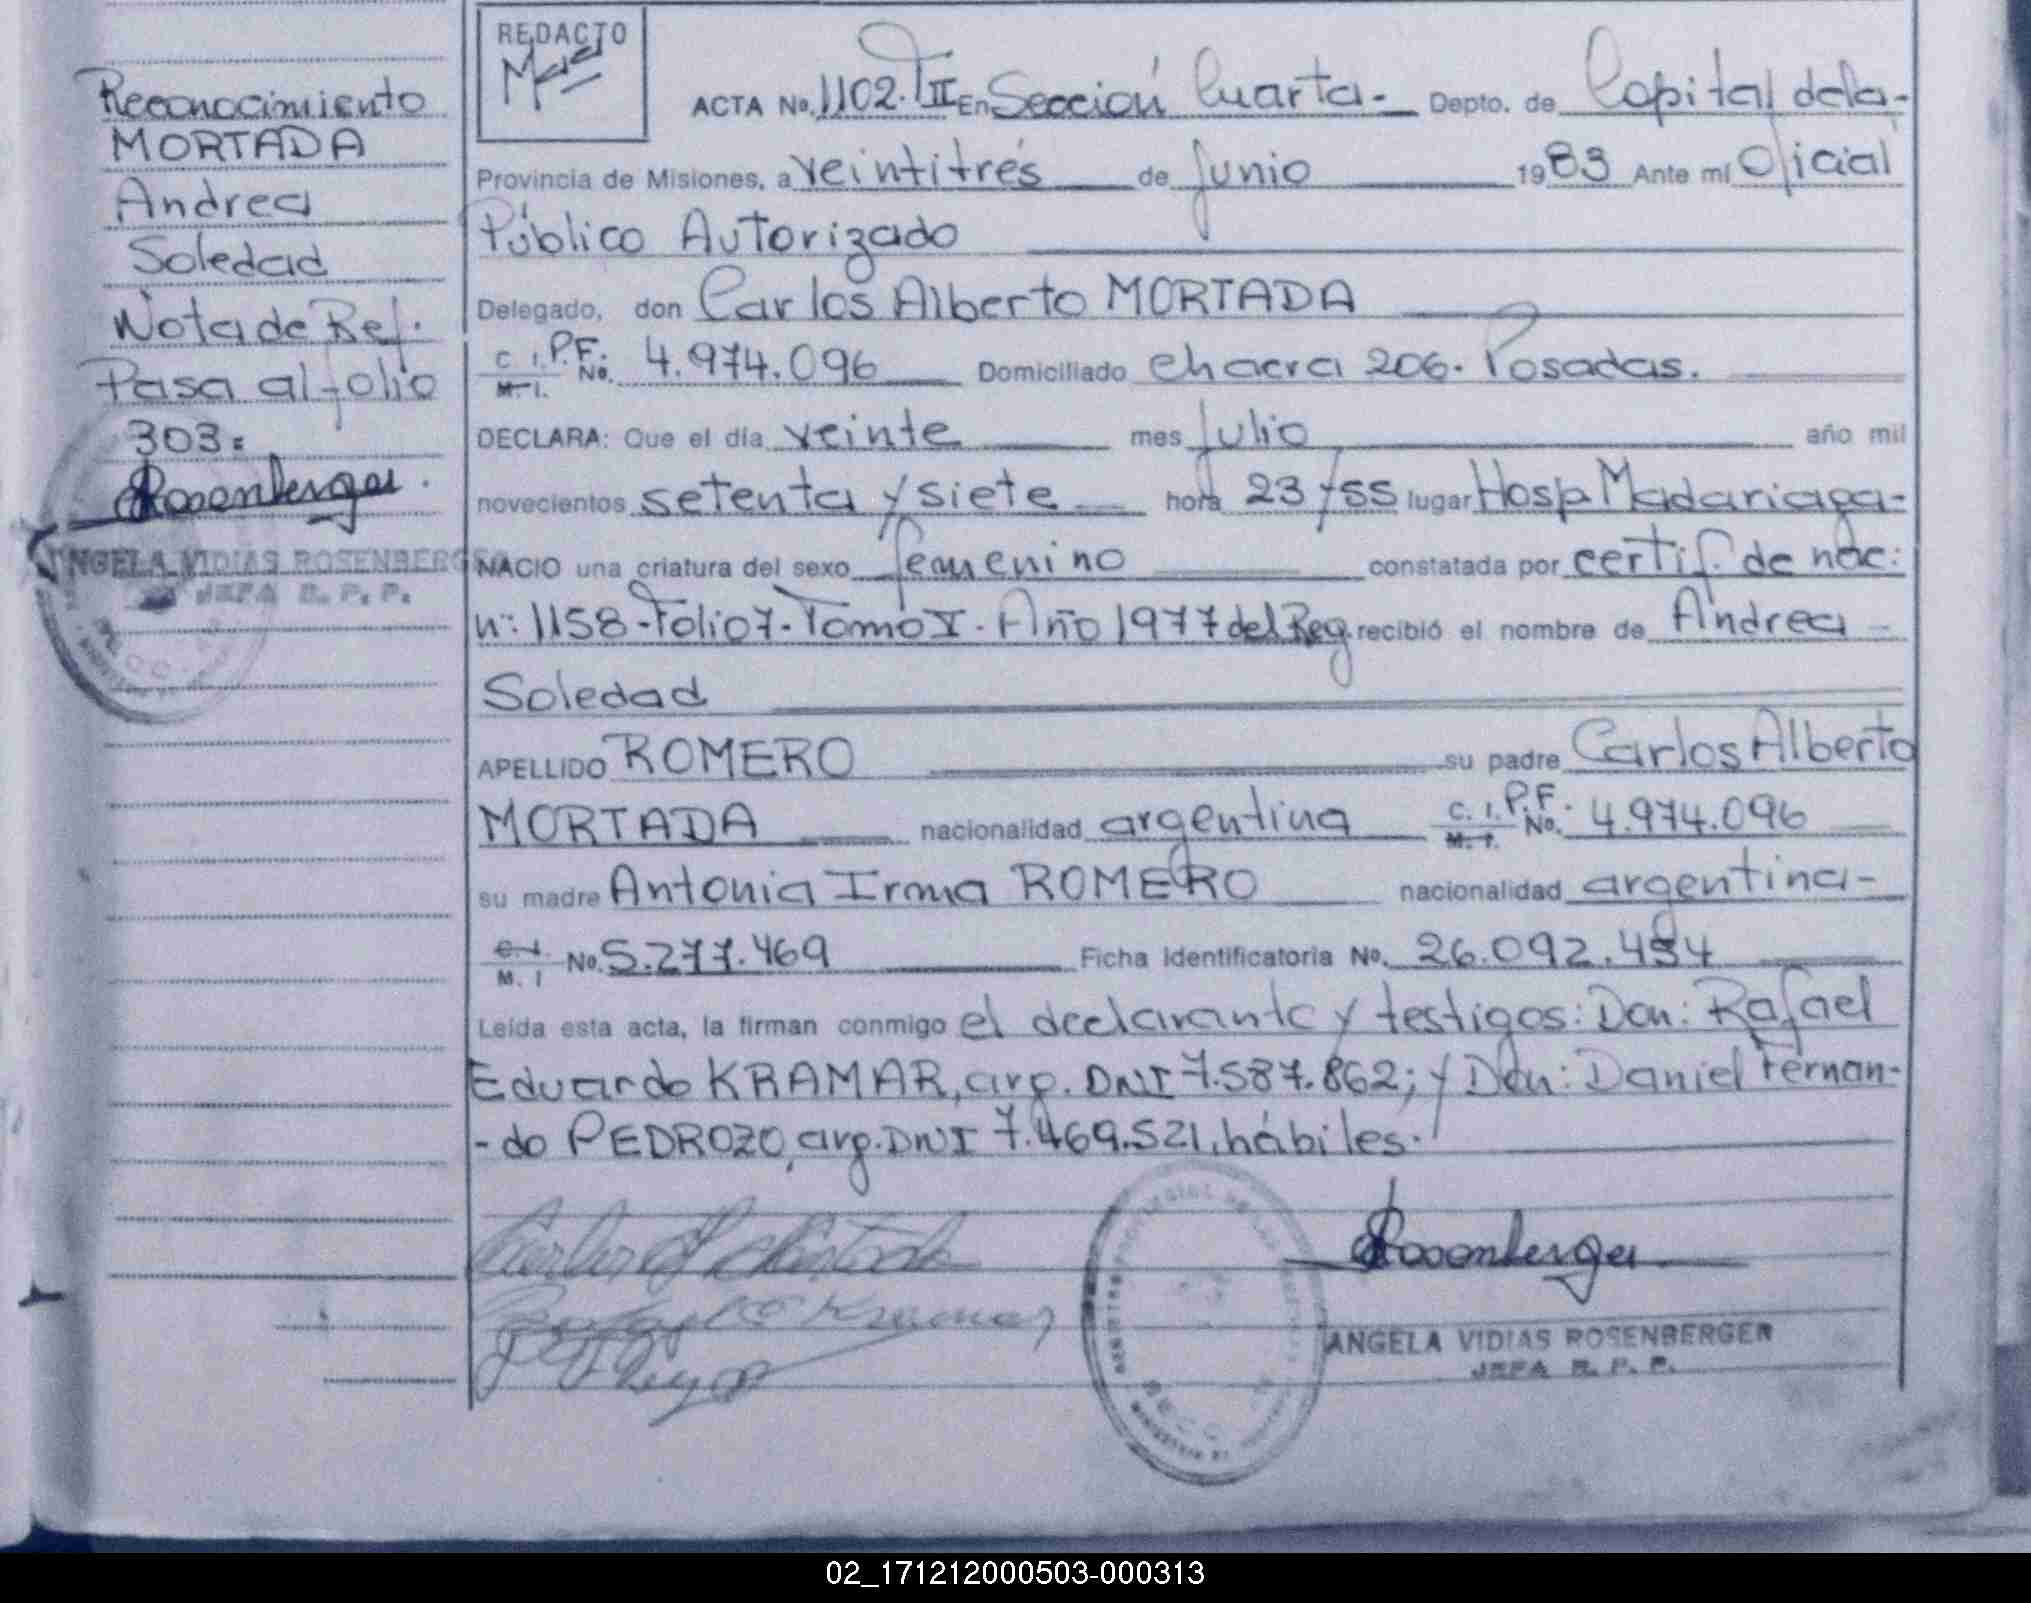 Reconocimiento
MORTADA
Andrea
Soledad
Nota de Ref.
Pasa al folio
303=
Rosenberger
ANGELA VIDIAS ROSENBERGER
JEFA R. P. P.
REDACTO
ACTA No. 1102. T II En Sección Cuarta- Depto. de Capital de la-
Provincia de Misiones, a veintitrés de junio 1983 Ante mí Oficial
Público Autorizado
Delegado, don Carlos Alberto MORTADA
C. I. P.F. M. I. No. 4.974.096 Domiciliado chacra 206. Posadas.
DECLARA: Que el día veinte mes julio año mil
novecientos setenta y siete hora 23 y 55 lugar Hosp Madariaga-
NACIO una criatura del sexo femenino constatada por certif. de nac:
nº: 1158-Folio 7-Tomo I. Año 1977 del Reg. recibió el nombre de Andrea -
Soledad
APELLIDO ROMERO su padre Carlos Alberto
MORTADA nacionalidad argentina C. I. P.F. M. I. No. 4.974.096
su madre Antonia Irma ROMERO nacionalidad argentina-
C. I. M. I No. 5.277.469 Ficha Identificatoria No. 26.092.494
Leída esta acta, la firman conmigo el declarante y testigos: Don: Rafael
Eduardo KRAMAR, arg. DNI 7.587.862; y Don: Daniel Fernan-
-do PEDROZO, arg. DNI 7.469.521, hábiles.
Carlos A Mortada
Rafael E Kramar
Rosenberger
ANGELA VIDIAS ROSENBERGER
JEFA R. P. P.
02_171212000503-000313